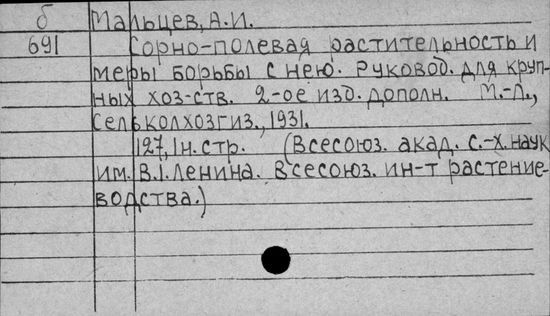 б Мальцев, А.И.
691 Сорно-полевая растительность и
меры борьбы с нею. Руковод. для круп-
ных хоз-ств. 2-ое изд. дополн. М.-Л.,
Сельколхозгиз., 1931.
127, 1н. стр. (Всесоюз. акад. с.-х. наук
им. В.I. Ленина. Всесоюз. ин-т растение-
водства.)